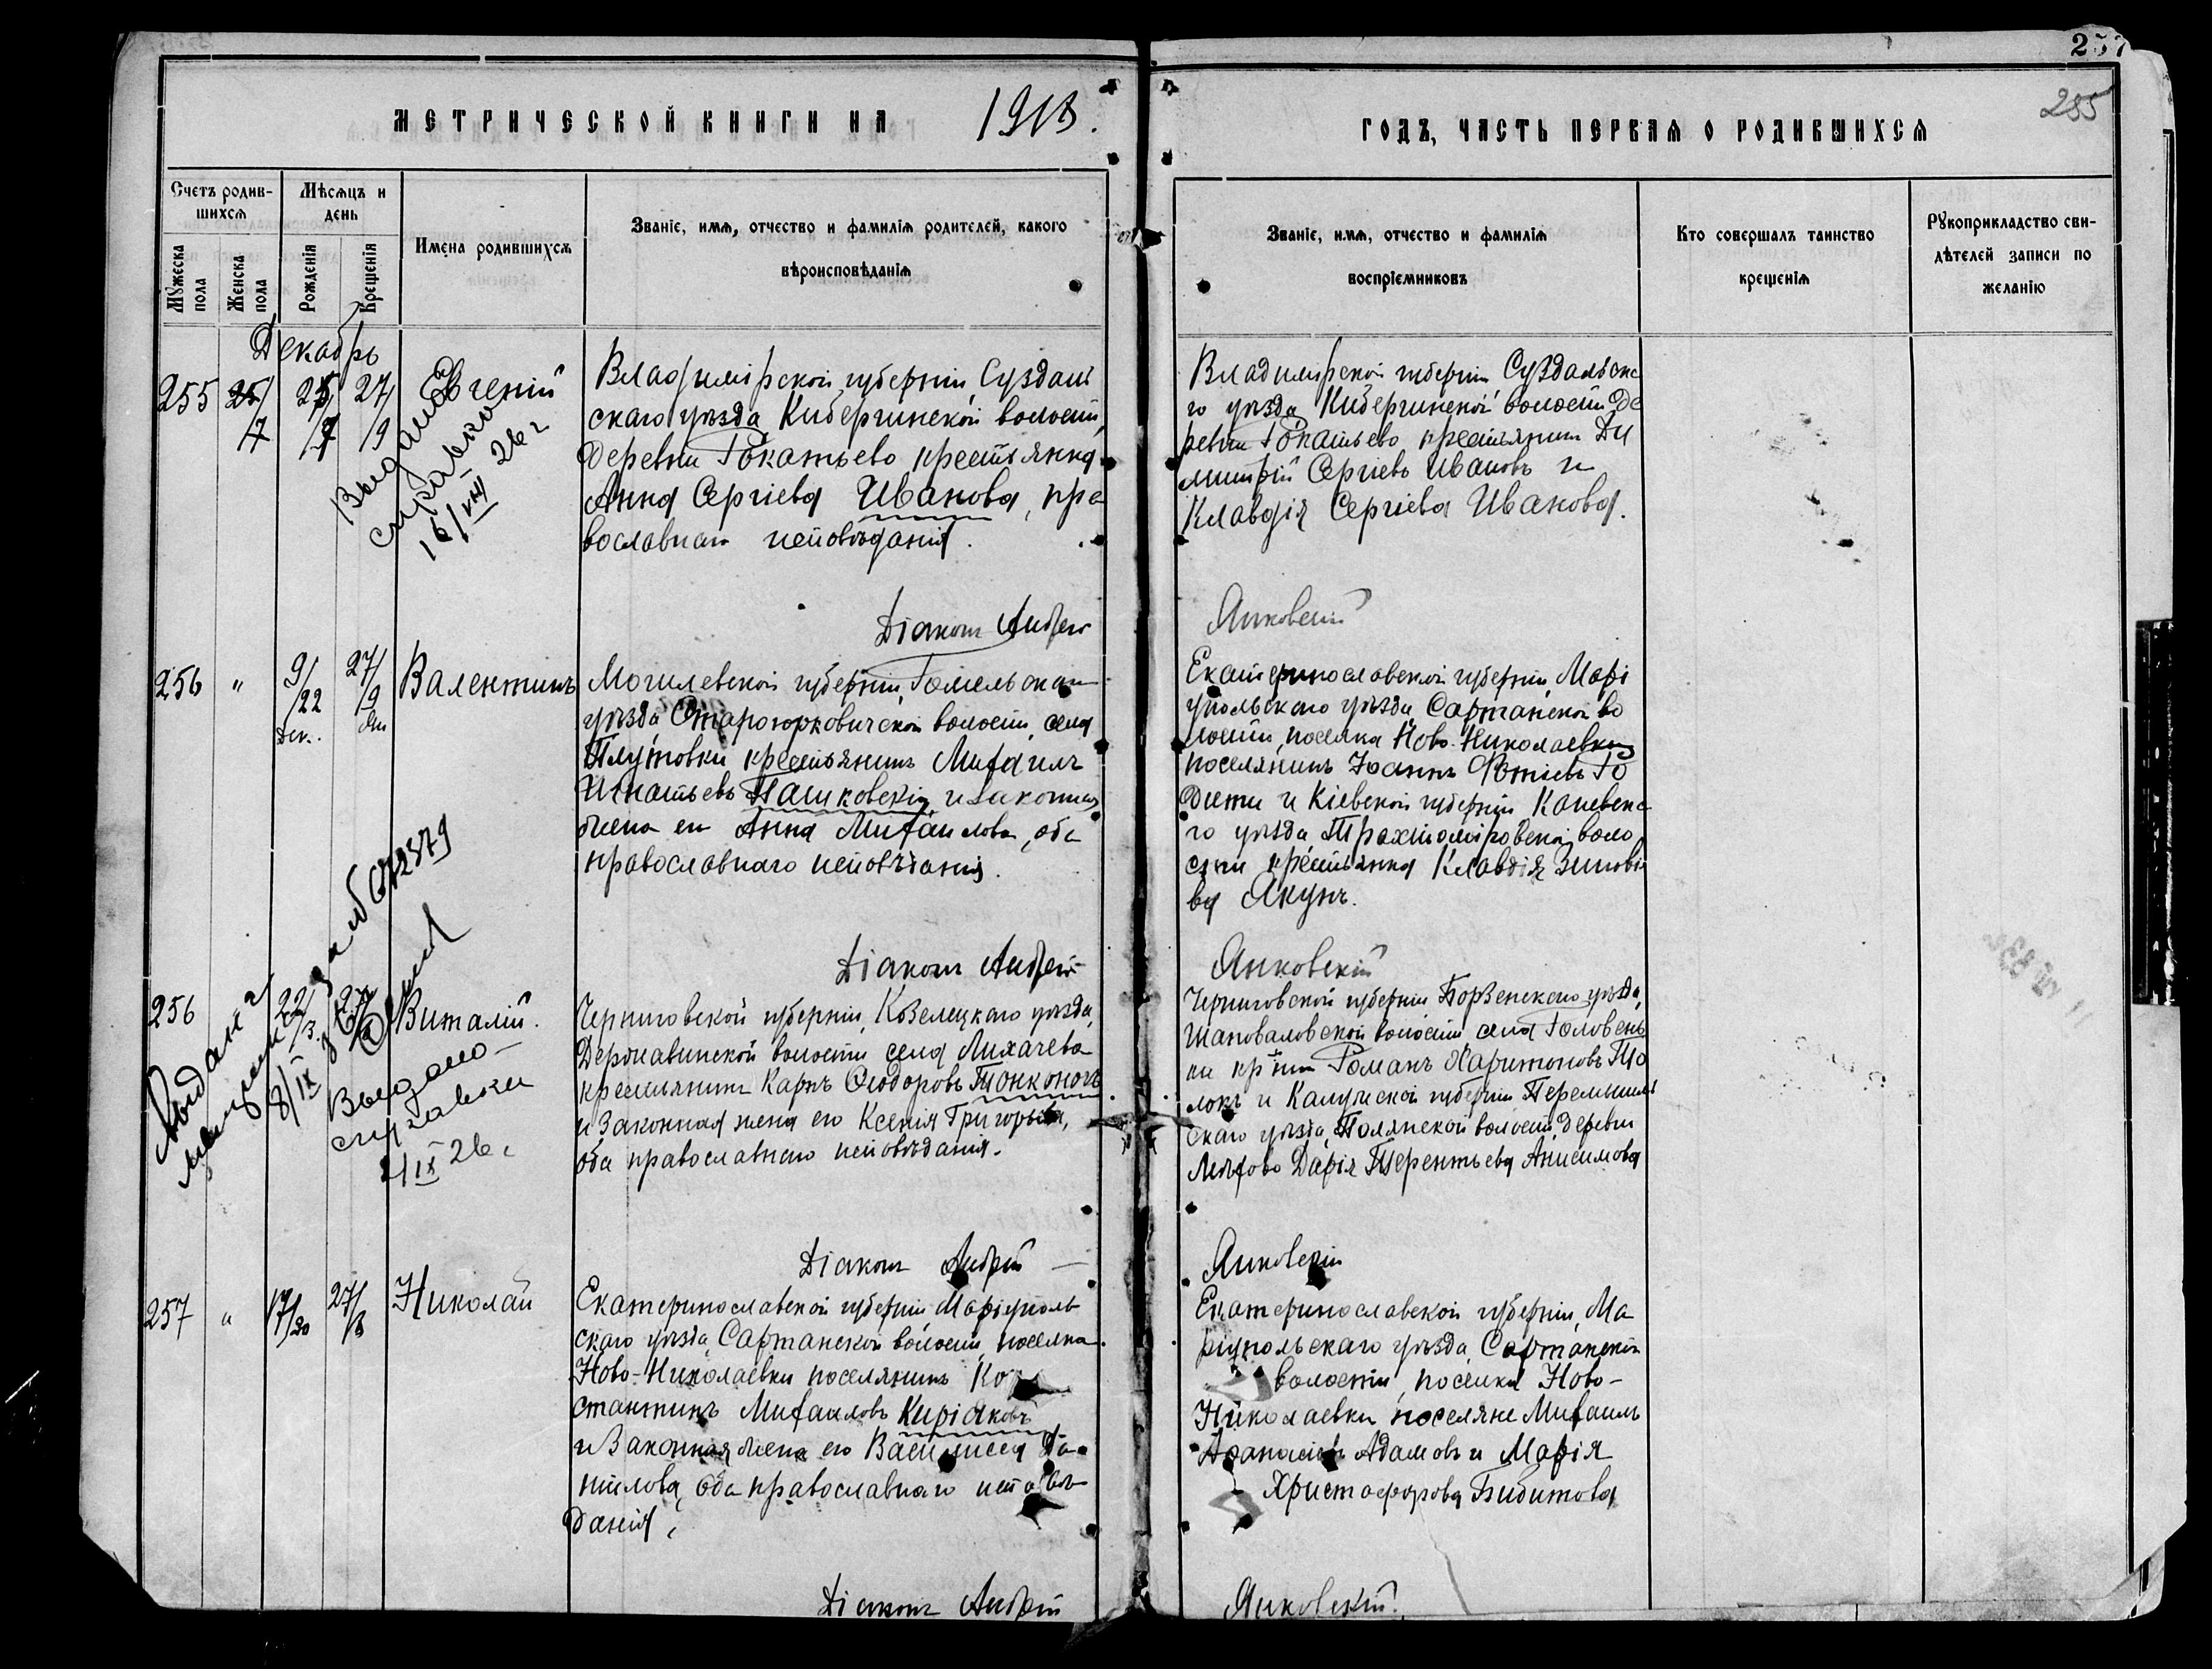 257
285
МЕТРИЧЕСКОЙ КНИГИ НА 1918.
ГОДЪ, ЧАСТЬ ПЕРВАЯ О РОДИВШИХСЯ
Счетъ родив-
шихся
Мѣсяцъ и
день
Мужеска
пола
Женска
пола
Рожденія
Крещенія
Имена родившихся
Званіе, имя, отчество и фамилія родителей, какого
вѣроисповѣданія
Званіе, имя, отчество и фамилія
воспріемниковъ
Кто совершалъ таинство
крещенія
Рукоприкладство сви-
дѣтелей записи по
желанію
Декабрь
255
27/
19
Евгеній
Выдано
справка
16/VIII 26 г
Владимірской губерніи, Суздаль
скаго уѣзда Кибергинской волости,
деревни Гокатьево крестьянка
Анна Сергіева Иванова, пра
вославнаго исповѣданія.
Владимірской губерніи Суздальска
го уѣзда Кибергинской волости де
ревни Гокатьево крестьянин Ди
митрій Сергіевъ Ивановъ и
Клавдія Сергіева Иванова.
Діаконъ Андрей
Янковскій
256 "
9/
22
Дек.
27/
9
Валентинъ
Могилевской губерніи, Гомельскаго
уѣзда Староюрковичской волости, села
Плутовки крестьянинъ Михаилъ
Игнатьевъ Пашковскій и законная
жена его Анна Михаилова, оба
православнаго исповѣданія.
Екатеринославской губерніи, Марі
упольскаго уѣзда Сартанской во
лости, поселка Ново-Николаевки
поселянинъ Іоаннъ Фотіевъ Го
и Кіевской губерніи Каневска
го уѣзда Трахтоміровской воло
сти крестьянка Клавдія Зиновіе
ва Якунъ.
Діаконъ Андрей
Янковскій
256
22/
27/
Виталій.
Выдана
8/IX
Выдано
справка
21 IX 26 г
Черниговской губерніи, Козелецкаго уѣзда,
Державинской волости села Лихачева
крестьянинъ Карпъ Ѳеодоровъ Тонконогъ
и законная жена его Ксенія Григорьева,
оба православнаго исповѣданія.
Черниговской губерніи Борзенскаго уѣзда,
Шаповаловской волости, села Головень
ки кр-нин Романъ Харитоновъ
и Калужской губерніи Перемышль
скаго уѣзда, Полянской волости, деревни
Дарія Терентьева Анисимова
Діаконъ Андрей
Янковскій
257 "
17/
30
27/
Николай
Екатеринославской губерніи Маріуполь
скаго уѣзда, Сартанской волости, поселка
Ново-Николаевки поселянинъ Кон
стантинъ Михаиловъ Киріаковъ
и законная жена его Василисса Да
нилова, оба православнаго исповѣ
данія,
Екатеринославской губерніи, Ма
ріупольскаго уѣзда Сартанской
волости, поселка Ново-
Николаевки поселяне Михаилъ
Аѳанасіевъ Адамовъ и Марія
Христофорова Бибитова
Діаконъ Андрей
Янковскій.